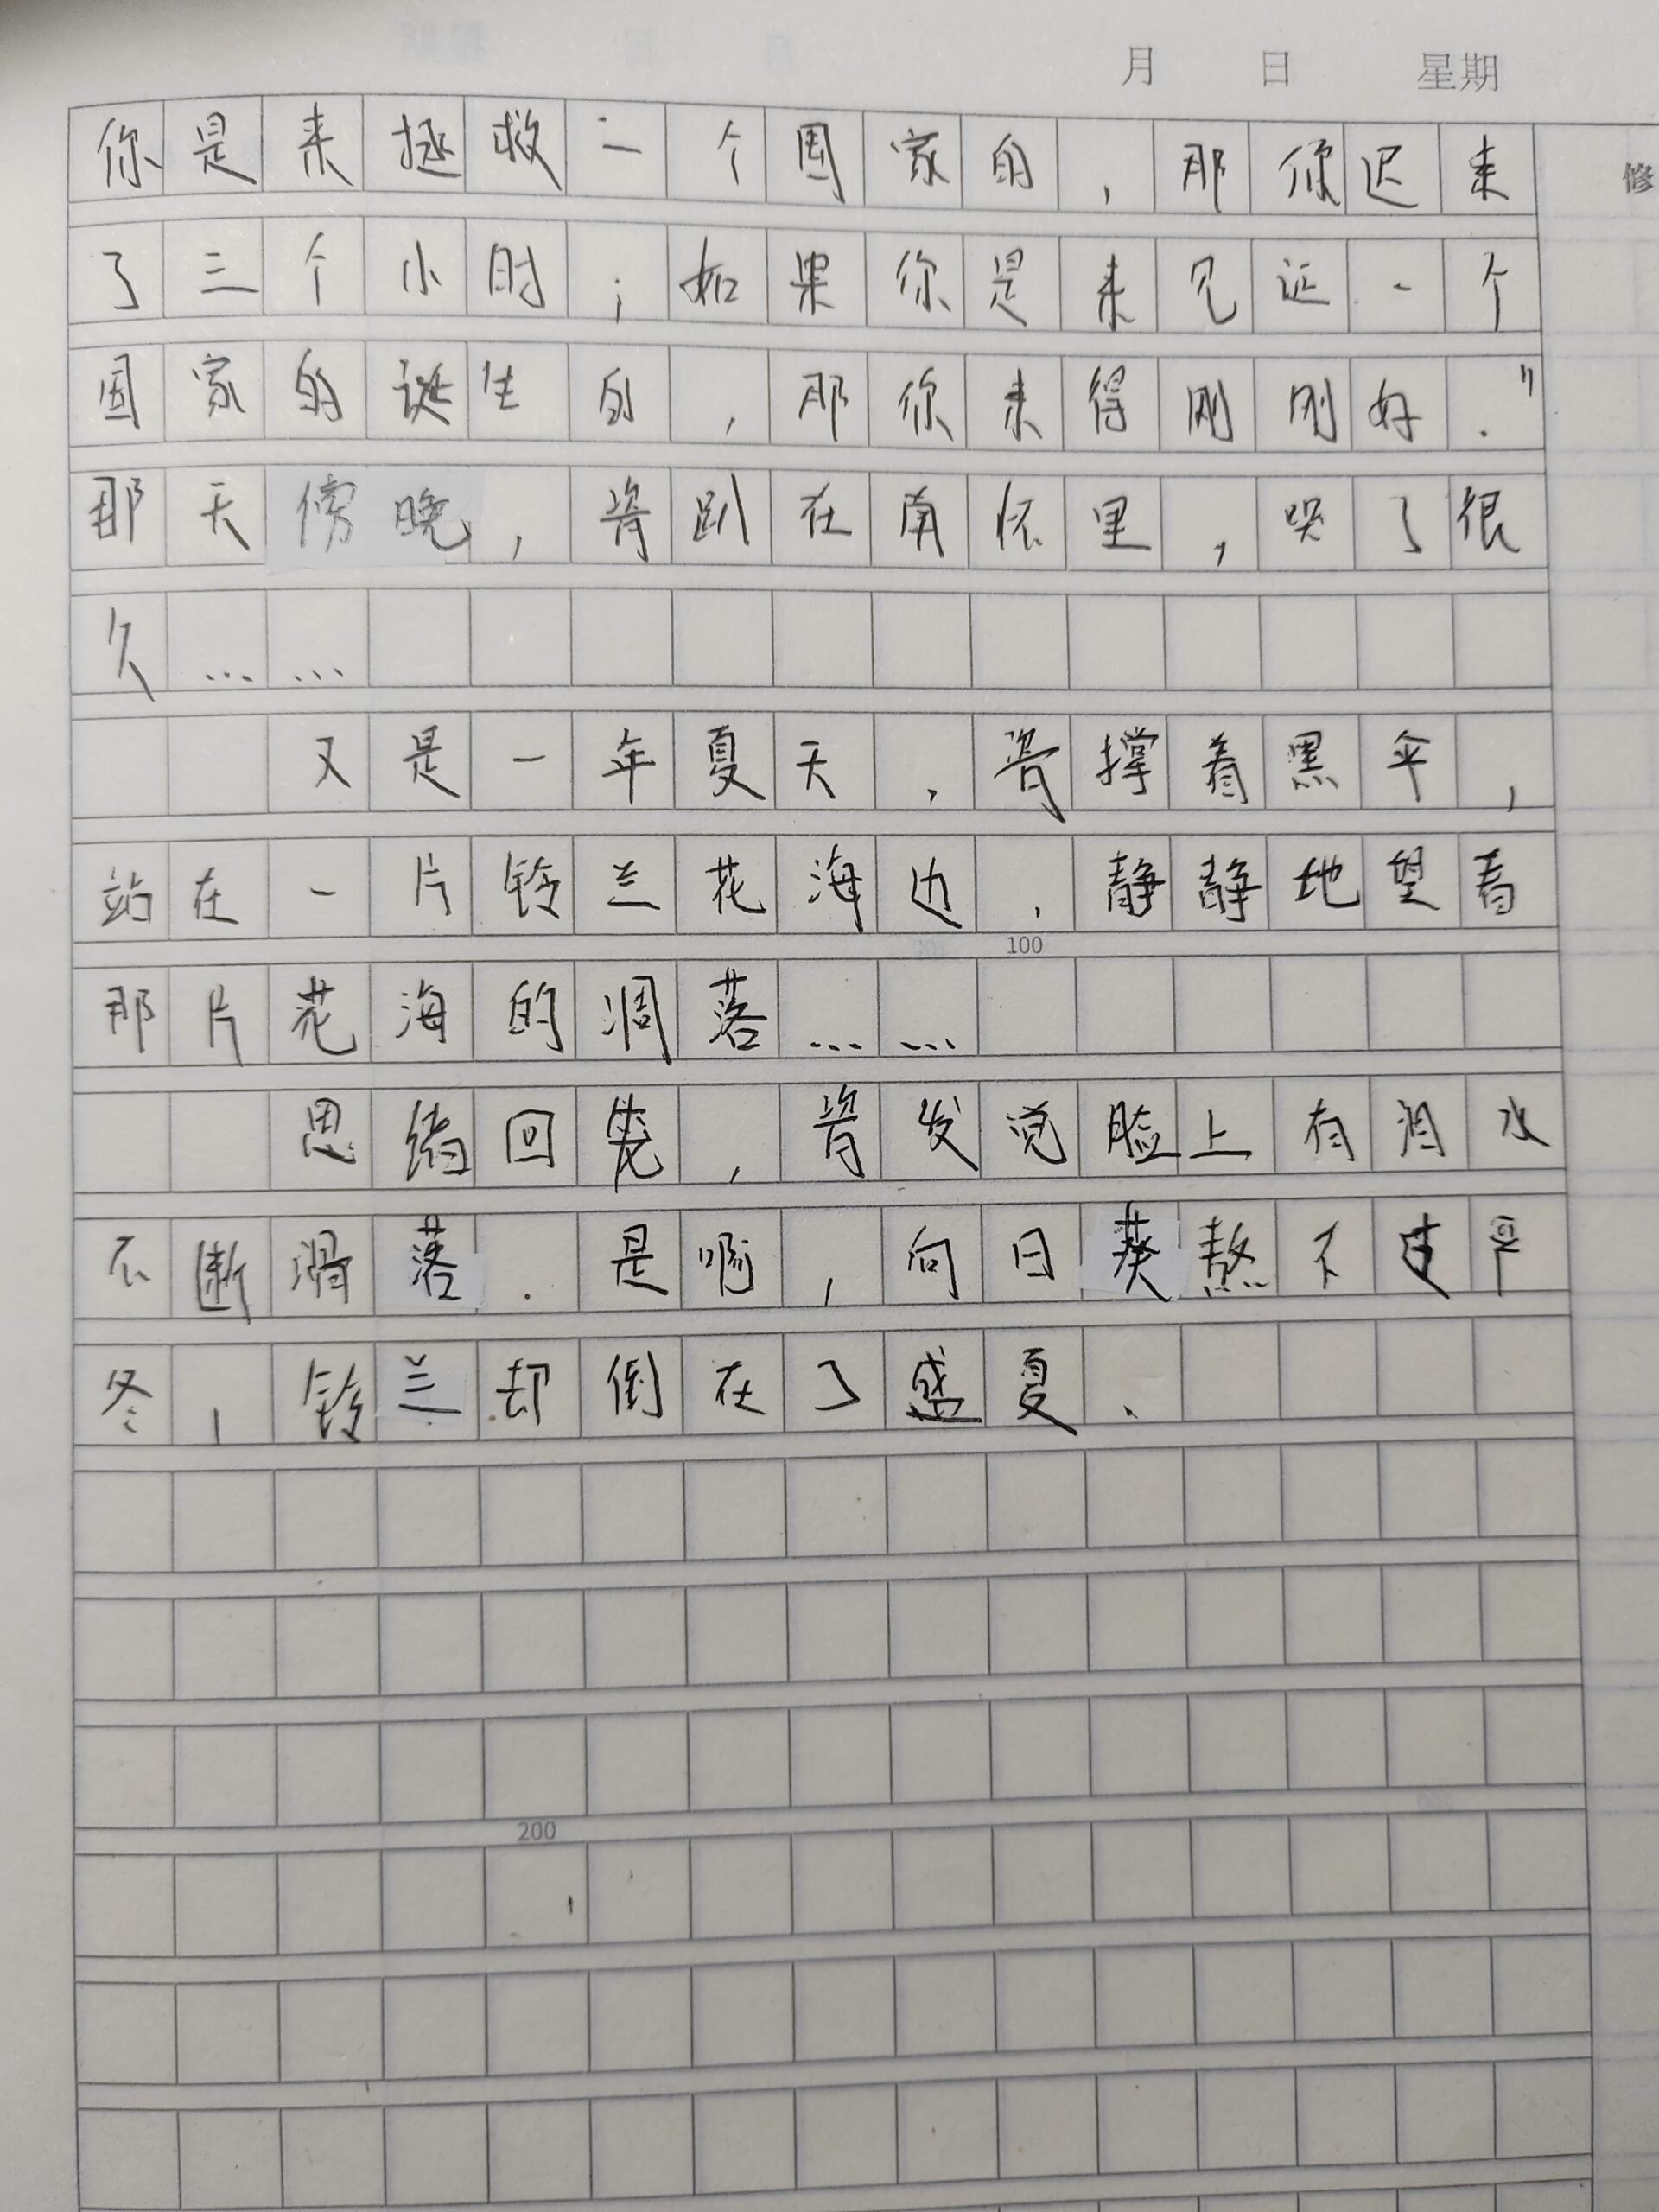 月 日 星期
修
你是来拯救一个国家的，那你迟来
了三个小时；如果你是来见证一个
国家的诞生的，那你来得刚刚好．”
那天傍晚，瓷趴在南怀里，哭了很
久……
又是一年夏天，瓷撑着黑伞，
站在一片铃兰花海边，静静地望着
那片花海的凋落……
100
思绪回笼，瓷发觉脸上有泪水
不断滑落．是啊，向日葵熬不过严
冬，铃兰却倒在了盛夏．
200